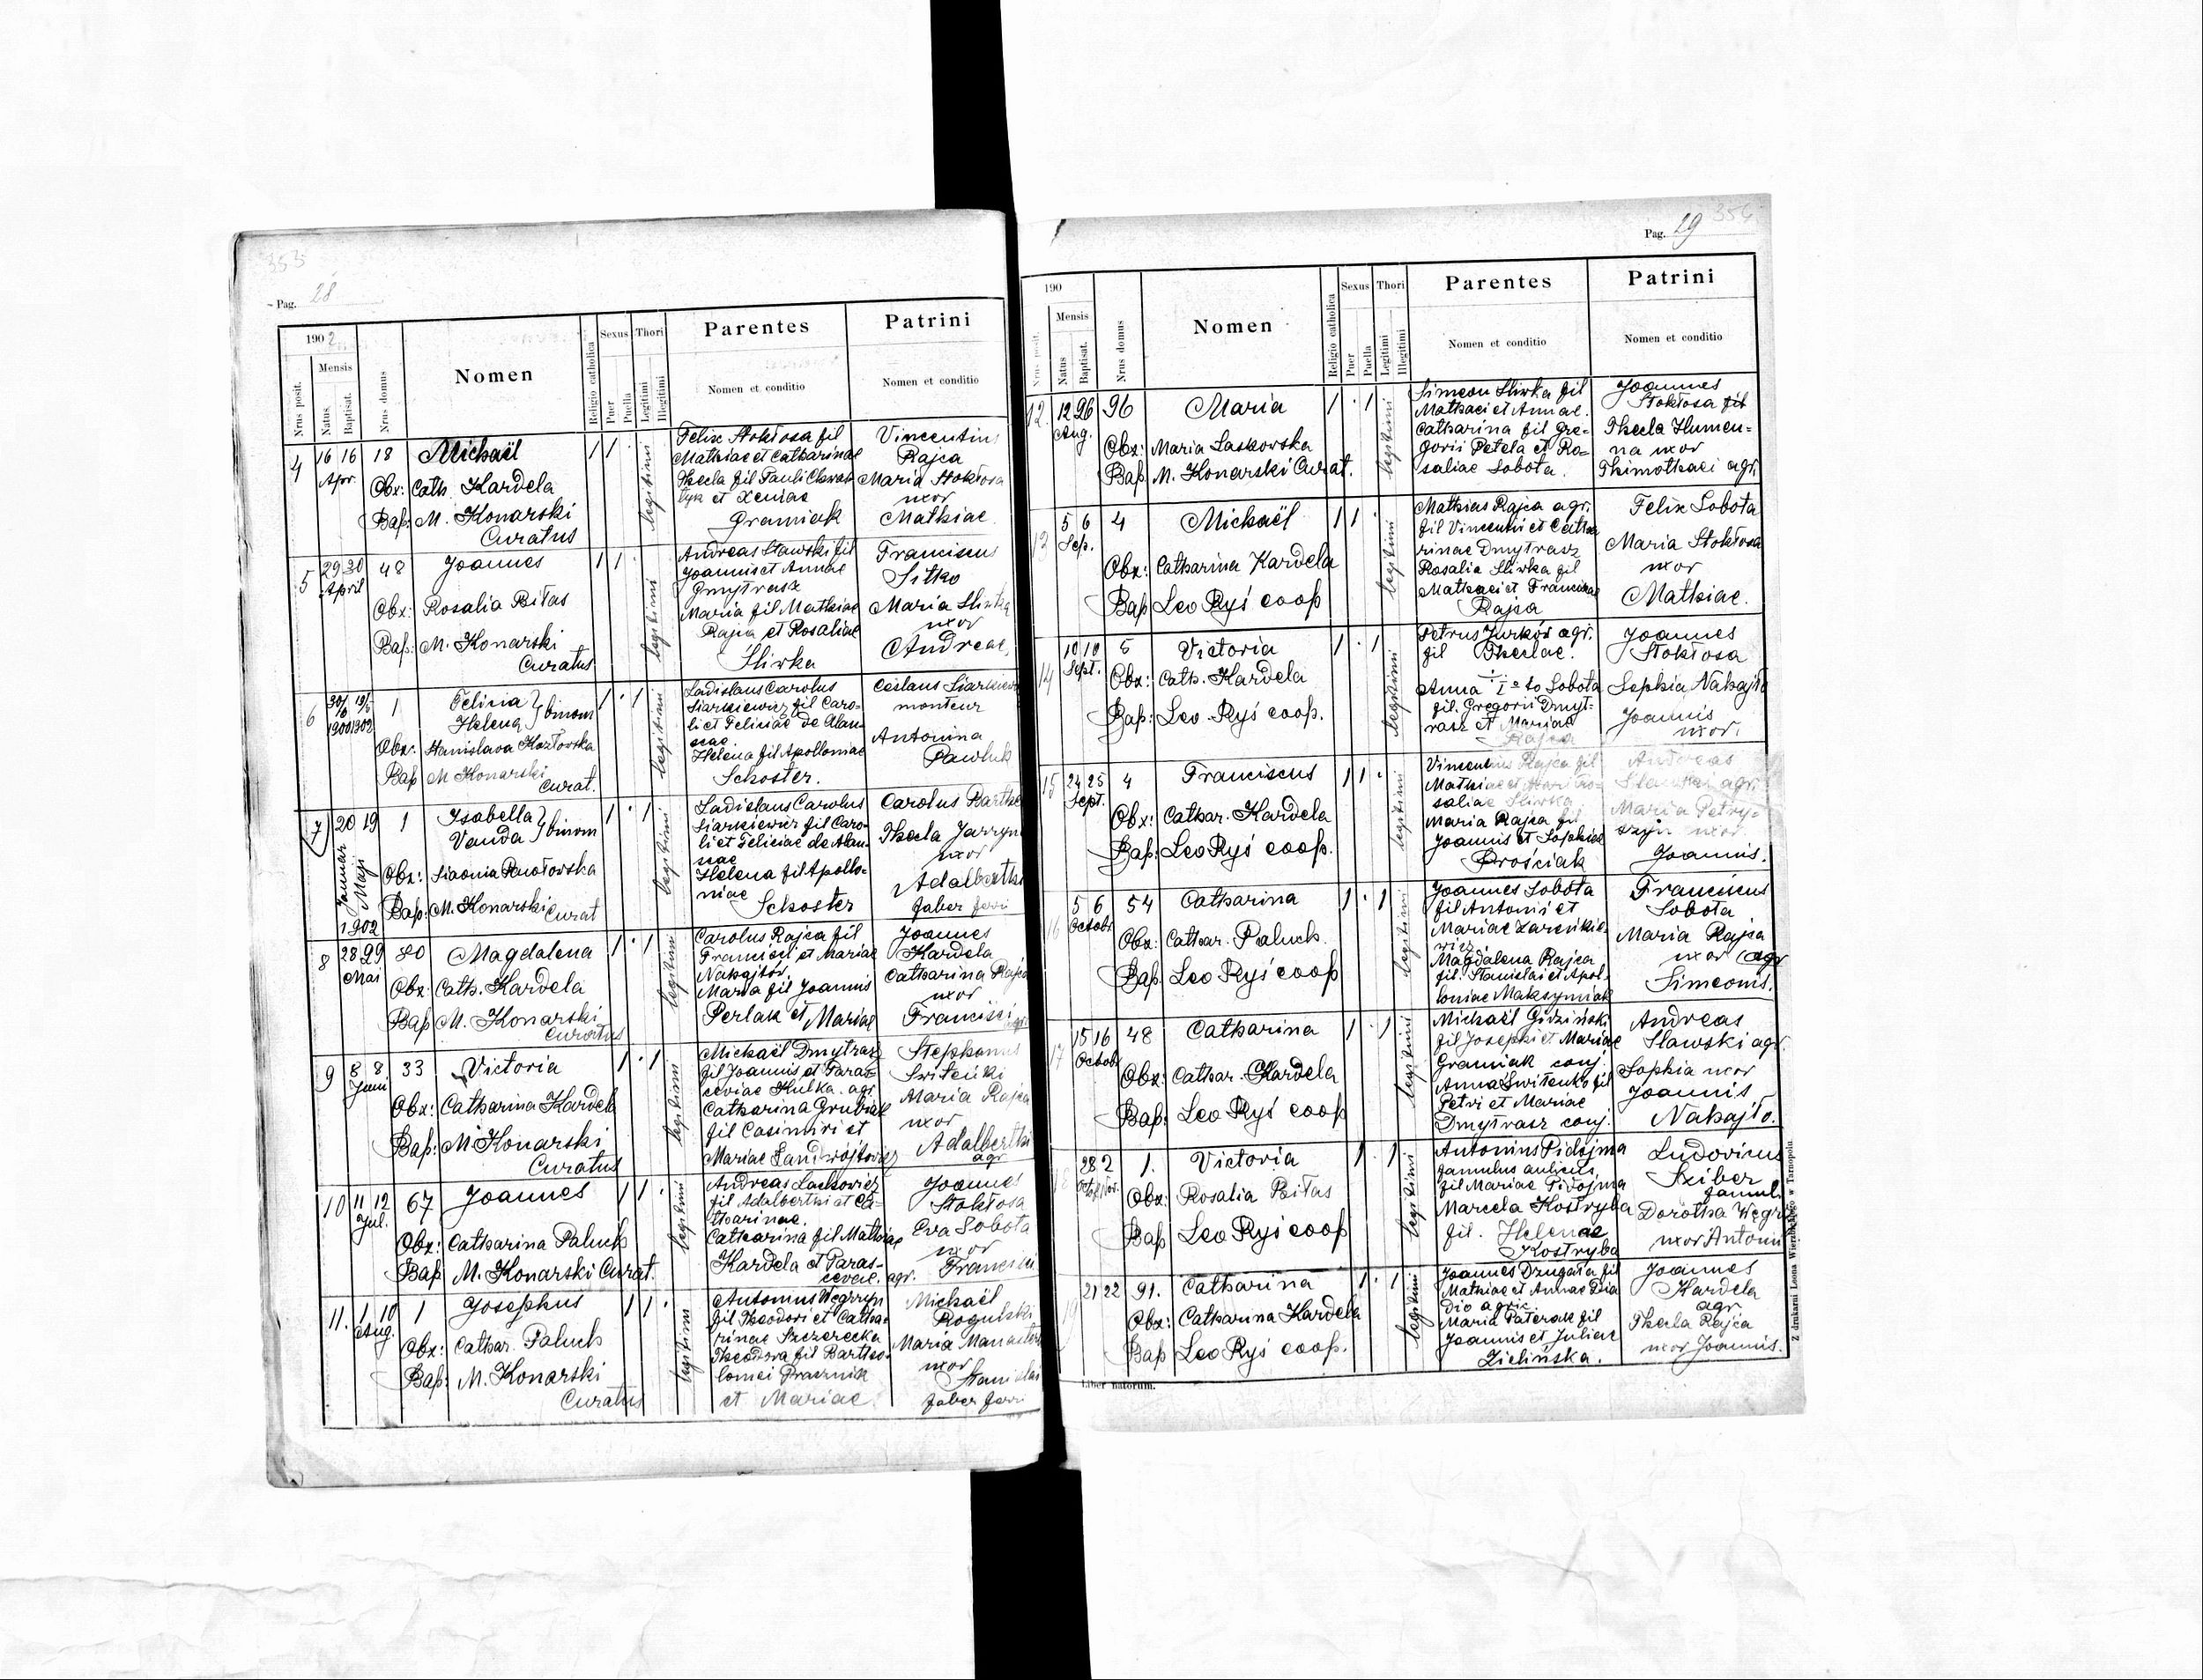 353
Pag. 28
1902
Mensis
Nrus posit.
Natus
Baptisat.
Nrus domus
Nomen
Religio catholica
Sexus
Puer
Puella
Thori
Legitimi
Illegitimi
Parentes
Nomen et conditio
Patrini
Nomen et conditio
4 16 16 18 Michaël 1 1 ·
Apr.
Obx: Cath. Kardela
Bap: M. Konarski
Curatus
legitimi
Felix Stokłosa fil
Mathiae et Catharinae
Thecla fil Pauli
et Xeniae
Gramiak
Vincentius
Rajca
Maria Stokłosa
uxor
Mathiae
5 29 30 48 Joannes 1 1 ·
April
Obx: Rosalia Biłas
Bap: M. Konarski
Curatus
legitimi
Andreas Sławski fil
Joannis et Annae
Dmytrasz
Maria fil Mathiae
Rajca et Rosaliae
Śliwka
Franciscus
Sitko
Maria Śliwka
uxor
Andreae
6 1 Felicia } binom 1 · 1
Helena
1900 1902
Obx: Stanislava Kozłowska
Bap M Konarski
Curat.
legitimi
Ladislaus Carolus
Siarkiewicz fil Caro-
li et Feliciae de
Helena fil Apolloniae
Schoster.
Ceslaus Siarkiewicz
monteur
Antonina
Pawluk
7 20 19 1 Isabella } binom 1 · 1
Vanda
Januar Maji
1902
Obx:
Bap: M. Konarski Curat
legitimi
Ladislaus Carolus
Siarkiewicz fil Caro-
li et Feliciae de
Helena fil Apollo-
niae
Schoster
Carolus
Thecla
uxor
Adalberthi
faber ferri
8 28 29 80 Magdalena 1 · 1
Mai
Obx: Cath. Kardela
Bap M. Konarski
Curatus
legitimi
Carolus Rajca fil
Francisci et Mariae
Nakajtór
Maria fil Joannis
Perlak et Mariae
Joannes
Kardela
Catharina Rajca
uxor
Francisci agr.
9 8 8 33 Victoria 1 · 1
Juni
Obx: Catharina Kardela
Bap: M. Konarski
Curatus
legitimi
Michaël Dmytrasz
fil Joannis et Paras-
ceviae Kulka agr.
Catharina Grubiak
fil Casimiri et
Mariae
Stephanus
Maria Rajca
uxor
Adalberthi
agr
10 11 12 67 Joannes 1 1 ·
Jul.
Obx: Catharina Paluch
Bap M. Konarski Curat.
legitimi
Andreas Laskowicz
fil Adalberthi et Ca-
tharinae.
Catharina fil Mathiae
Kardela et Paras-
ceveae. agr.
Joannes
Stokłosa
Eva Sobota
uxor
Francisci
11. 1 10 1 Josephus 1 1 ·
Aug.
Obx: Cathar. Paluch
Bap: M. Konarski
Curatus
legitimi
Antonius Węgrzyn
fil Theodori et Catha-
rinae Szczerecka
Theodora fil Bartho-
lomei Prasznik
et Mariae
Michaël
Rogulski
Maria
uxor
Stanislai
faber ferri
Pag. 29 356
190
Mensis
Natus
Baptisat.
Nrus domus
Nomen
Religio catholica
Sexus
Puer
Puella
Thori
Legitimi
Illegitimi
Parentes
Nomen et conditio
Patrini
Nomen et conditio
12. 12 26 96 Maria 1 · 1
Aug.
Obx: Maria Laskowska
Bap M. Konarski Curat.
legitimi
Simeon Śliwka fil
Mathaei et Annae.
Catharina fil Gre-
gorii Petela et Ro-
saliae Sobota.
Joannes
Stokłosa fil
Thecla Humen-
na uxor
Thimothaei agr.
13 5 6 4 Michaël 1 1 ·
Sep.
Obx: Catharina Kardela
Bap Leo Ryś coop
legitimi
Mathias Rajca agr.
fil Vincentii et Catha
rinae Dmytrasz
Rosalia Śliwka fil
Mathaei et Franciscae
Rajca
Felix Sobota
Maria Stokłosa
uxor
Mathiae.
14 10 10 5 Victoria 1 · 1
Sept.
Obx: Cath. Kardela
Bap: Leo Ryś coop.
legitimi
Petrus Jurków agr.
fil Theclae.
Anna Io to Sobota
fil. Gregorii Dmyt-
rasz et Mariae
Rajca
Joannes
Stokłosa
Sophia Nakajto
Joannis
uxor.
15 24 25 4 Franciscus 1 1 ·
Sept.
Obx: Cathar. Kardela
Bap: Leo Ryś coop.
legitimi
Vincentius Rajca fil
Mathiae et Ro-
saliae Śliwka
Maria Rajca fil
Joannis et Sophiae
Prościak
Andreas
Sławski agr.
Maria Petry-
szyn uxor
Joannis.
16 5 6 54 Catharina 1 · 1
Octobr
Obx: Cathar. Paluch.
Bap: Leo Ryś coop
legitimi
Joannes Sobota
fil Antonii et
Mariae
Magdalena Rajca
fil. Stanislai et Apol-
loniae Maksymiak
Franciscus
Sobota
Maria Rajca
uxor agr
Simeonis.
17 15 16 48 Catharina 1 · 1
Octobr
Obx: Cathar. Kardela
Bap: Leo Ryś coop
legitimi
Michaël Gidziński
fil Josephi et Mariae
Gramiak conj.
Anna Świtenko fil
Petri et Mariae
Dmytrasz conj.
Andreas
Sławski agr.
Sophia uxor
Joannis
Nakajto.
18 28 2 1. Victoria 1 · 1
Oct. Nov.
Obx: Rosalia Biłas
Bap Leo Ryś coop
legitimi
Antonius Pidojma
famulus aulicus,
fil Mariae Pidojma
Marcela Kostryba
fil. Helenae
Kostryba
Ludovicus
Sziber
famul.
Dorotha Węgrz
uxor Antonii
19 21 22 91. Catharina 1 · 1
Obx: Catharina Kardela
Bap Leo Ryś coop.
legitimi
Joannes Dzugała fil
Mathiae et Annae Dia
dio agric.
Maria Paterak fil
Joannis et Juliae
Zielińska.
Joannes
Kardela
agr.
Thecla Rajca
uxor Joannis.
Liber natorum.
Z drukarni Leona Wierzbickiego w Tarnopolu